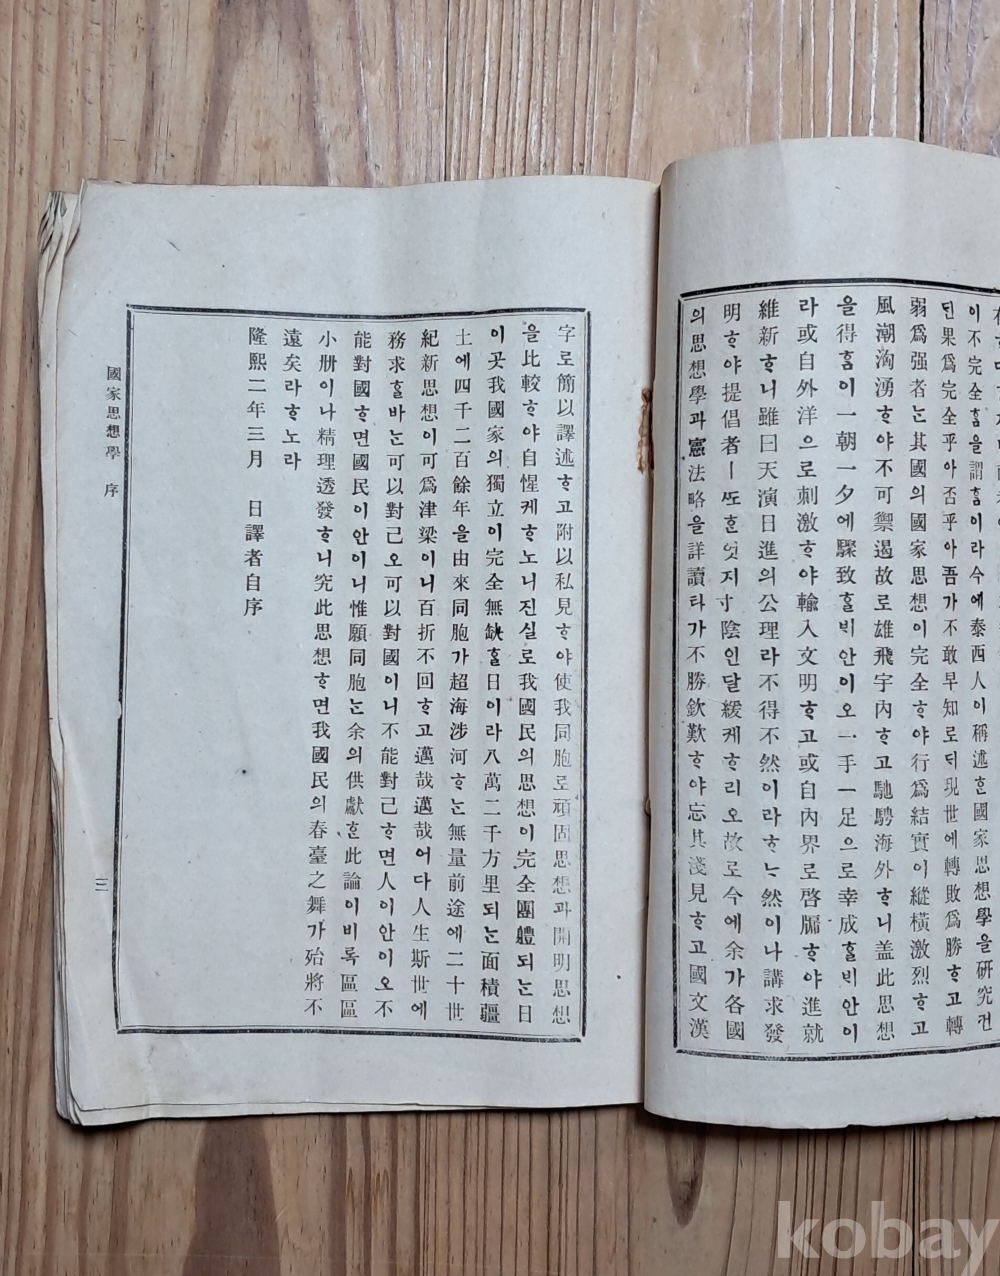 이不完全ᄒᆞᆷ을謂ᄒᆞᆷ이라今에泰西人이稱述ᄒᆞᆫ國家思想學을硏究건
딘果爲完全乎아否乎아吾가不敢早知로ᄃᆡ現世에轉敗爲勝ᄒᆞ고轉
弱爲强者ᄂᆞᆫ其國의國家思想이完全ᄒᆞ야行爲結實이縱橫激烈ᄒᆞ고
風潮洶湧ᄒᆞ야不可禦遏故로雄飛宇內ᄒᆞ고馳騁海外ᄒᆞ니盖此思想
을得ᄒᆞᆷ이一朝一夕에驟致ᄒᆞᆯ비안이오一手一足으로幸成ᄒᆞᆯ비안이
라或自外洋으로刺激ᄒᆞ야輸入文明ᄒᆞ고或自內界로啓牖ᄒᆞ야進就
維新ᄒᆞ니雖曰天演日進의公理라不得不然이라ᄒᆞᄂᆞ然이나講求發
明ᄒᆞ야提倡者ㅣᄯᅩᄒᆞᆫ엇지寸陰인달緩케ᄒᆞ리오故로今에余가各國
의思想學과憲法略을詳讀타가不勝欽歎ᄒᆞ야忘其淺見ᄒᆞ고國文漢
字로簡以譯述ᄒᆞ고附以私見ᄒᆞ야使我同胞로頑固思想과開明思想
을比較ᄒᆞ야自惺케ᄒᆞ노니진실로我國民의思想이完全團軆되ᄂᆞᆫ日
이곳我國家의獨立이完全無缺ᄒᆞᆯ日이라八萬二千方里되ᄂᆞᆫ面積疆
土에四千二百餘年을由來同胞가超海涉河ᄒᆞᄂᆞᆫ無量前途에二十世
紀新思想이可爲津梁이니百折不回ᄒᆞ고邁哉邁哉어다人生斯世에
務求ᄒᆞᆯ바ᄂᆞᆫ可以對己오可以對國이니不能對己ᄒᆞ면人이안이오不
能對國ᄒᆞ면國民이안이니惟願同胞ᄂᆞᆫ余의供獻ᄒᆞᆫ此論이비록區區
小冊이나精理透發ᄒᆞ니究此思想ᄒᆞ면我國民의春臺之舞가殆將不
遠矣라ᄒᆞ노라
隆熙二年三月 日譯者自序
國家思想學 序
三
kobay